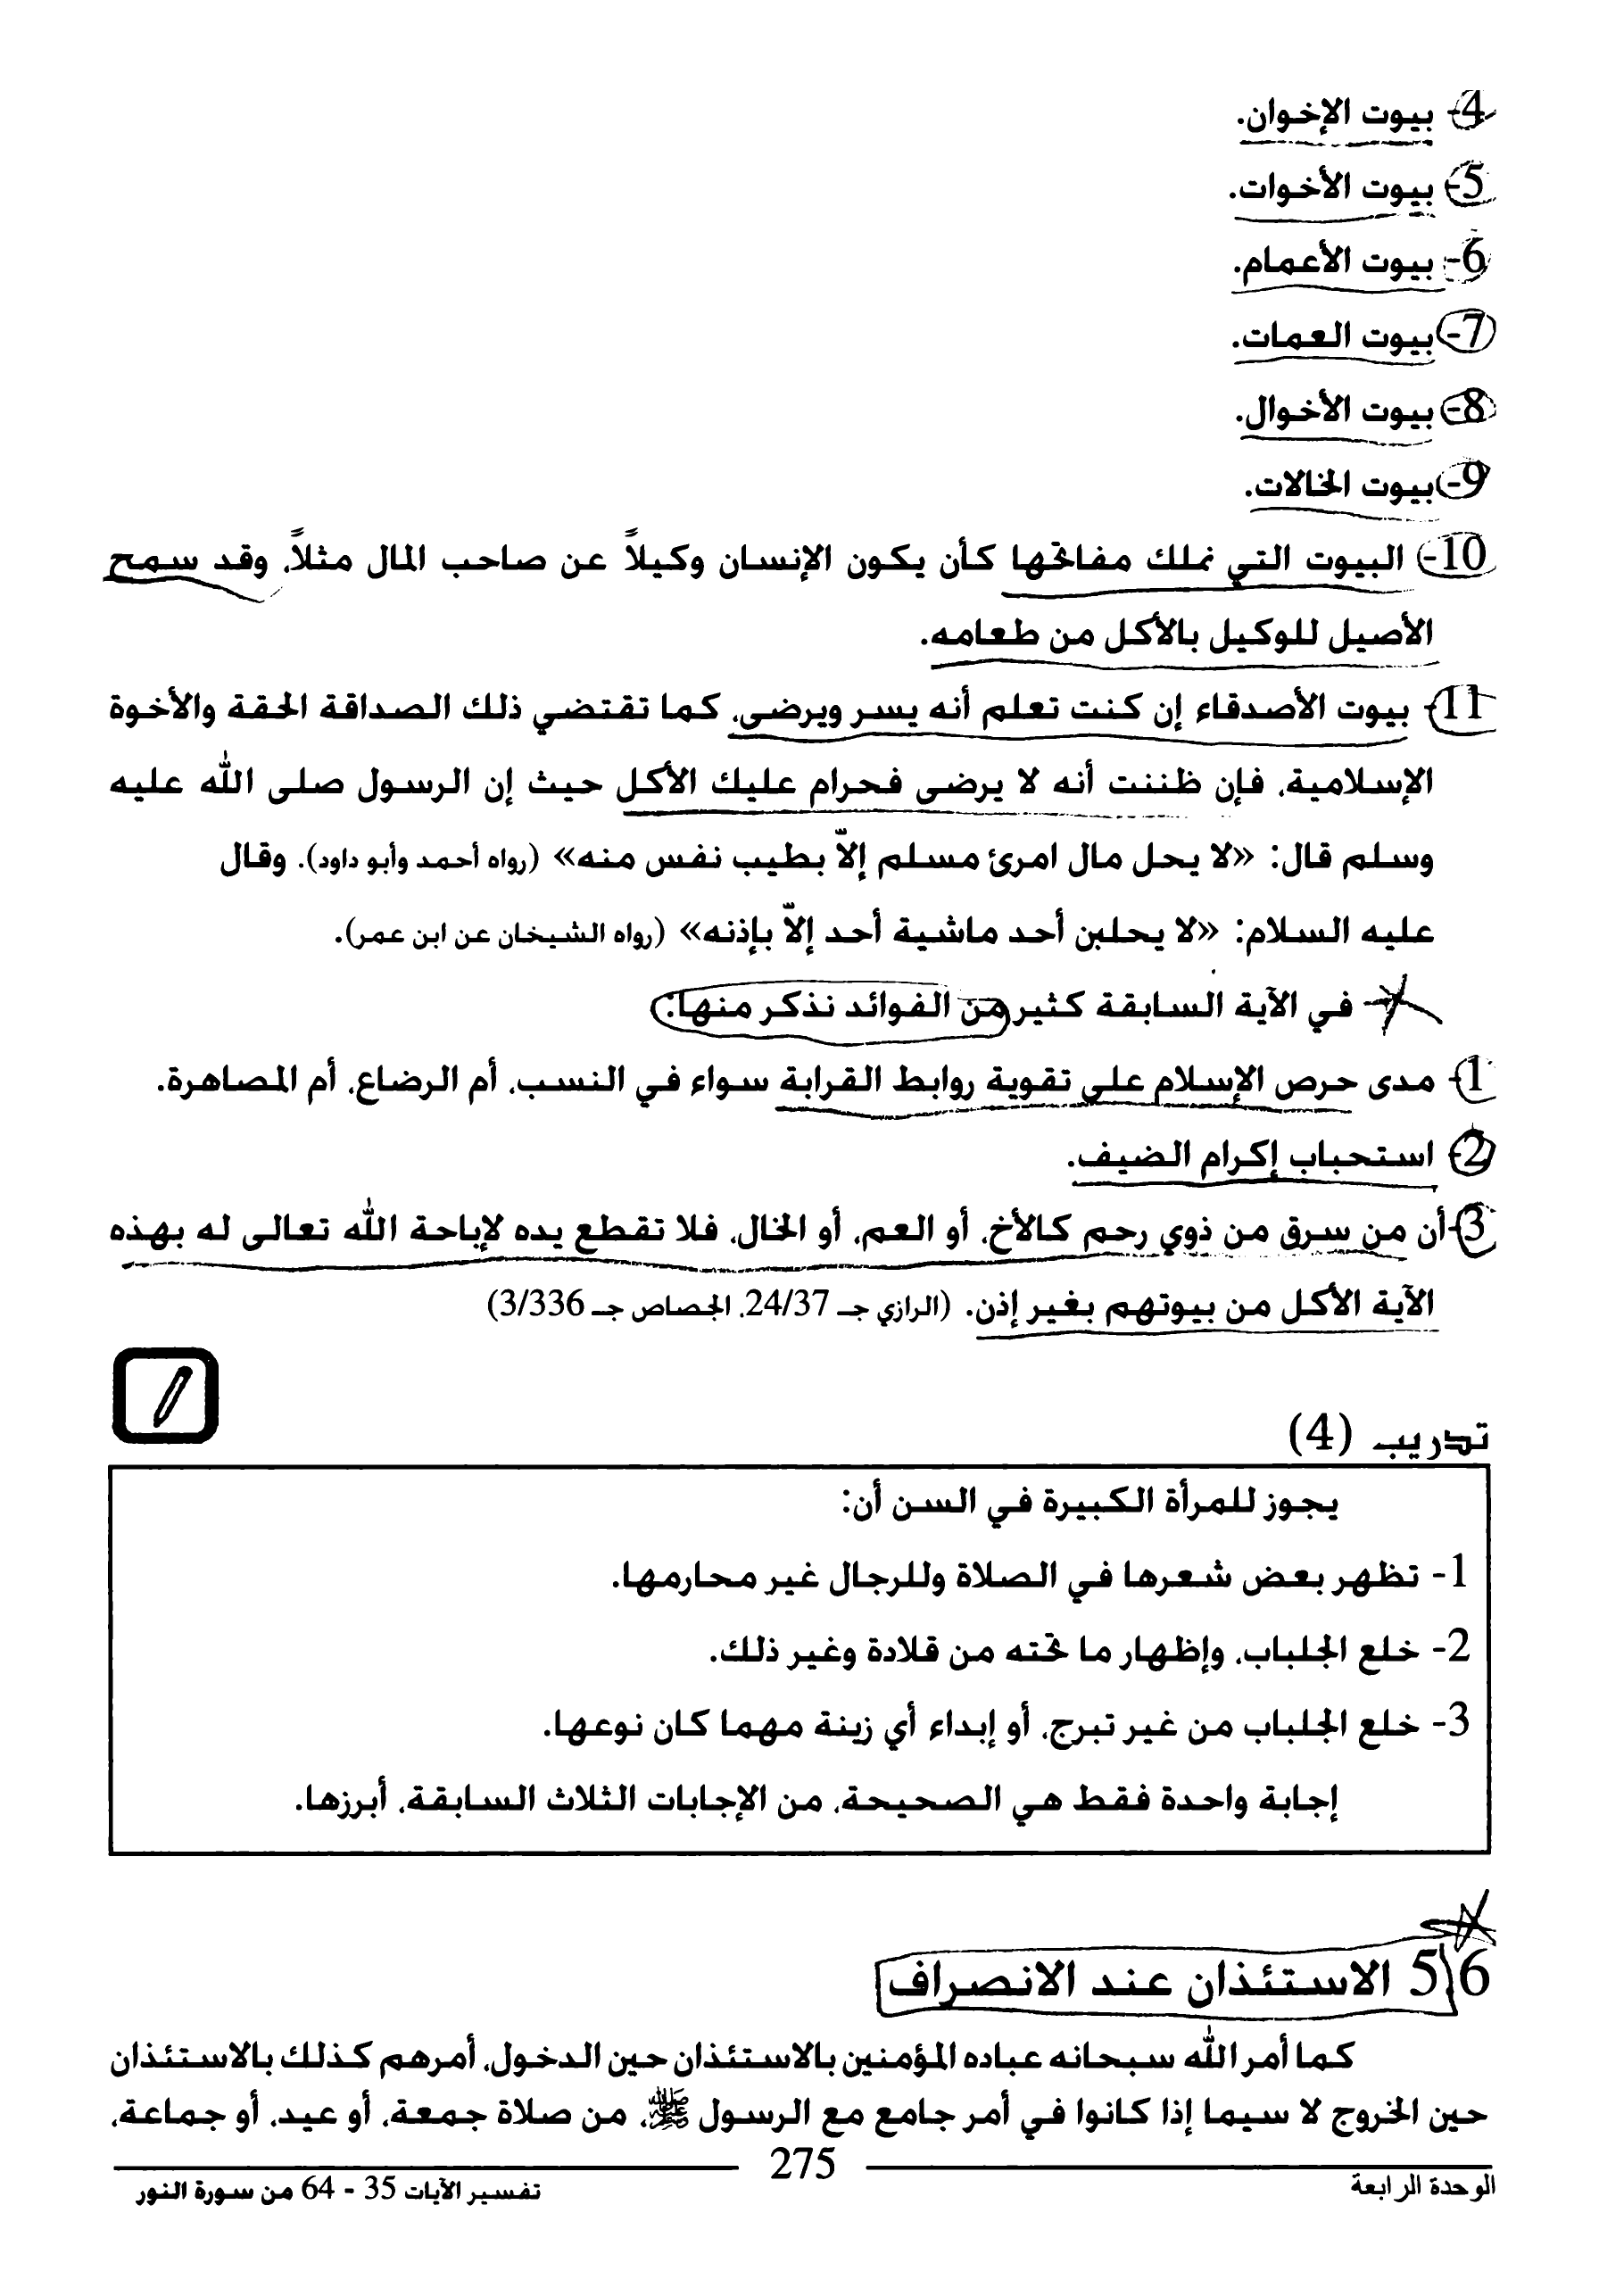 4- بيوت الإخوان.
5- بيوت الأخوات.
6- بيوت الأعمام.
7- بيوت العمات.
8- بيوت الأخوال.
9- بيوت الخالات.
10- البيوت التي نملك مفاتحها كأن يكون الإنسان وكيلاً عن صاحب المال مثلاً، وقد سمح
الأصيل للوكيل بالأكل من طعامه.
11- بيوت الأصدقاء إن كنت تعلم أنه يسر ويرضى، كما تقتضي ذلك الصداقة الحقة والأخوة
الإسلامية، فإن ظننت أنه لا يرضى فحرام عليك الأكل حيث إن الرسول صلى الله عليه
وسلم قال: «لا يحل مال امرئ مسلم إلاّ بطيب نفس منه» (رواه أحمد وأبو داود). وقال
عليه السلام: «لا يحلبن أحد ماشية أحد إلاّ بإذنه» (رواه الشيخان عن ابن عمر).
في الآية السابقة كثير من الفوائد نذكر منها:
1- مدى حرص الإسلام على تقوية روابط القرابة سواء في النسب، أم الرضاع، أم المصاهرة.
2- استحباب إكرام الضيف.
3- أن من سرق من ذوي رحم كالأخ، أو العم، أو الخال، فلا تقطع يده لإباحة الله تعالى له بهذه
الآية الأكل من بيوتهم بغير إذن. (الرازي جـ 24/37، الجصاص جـ 3/336)
تدريب (4)
يجوز للمرأة الكبيرة في السن أن:
1- تظهر بعض شعرها في الصلاة وللرجال غير محارمها.
2- خلع الجلباب، وإظهار ما تحته من قلادة وغير ذلك.
3- خلع الجلباب من غير تبرج، أو إبداء أي زينة مهما كان نوعها.
إجابة واحدة فقط هي الصحيحة، من الإجابات الثلاث السابقة، أبرزها.
5\6 الاستئذان عند الانصراف
كما أمر الله سبحانه عباده المؤمنين بالاستئذان حين الدخول، أمرهم كذلك بالاستئذان
حين الخروج لا سيما إذا كانوا في أمر جامع مع الرسول ﷺ، من صلاة جمعة، أو عيد، أو جماعة،
275
الوحدة الرابعة
تفسير الآيات 35 - 64 من سورة النور